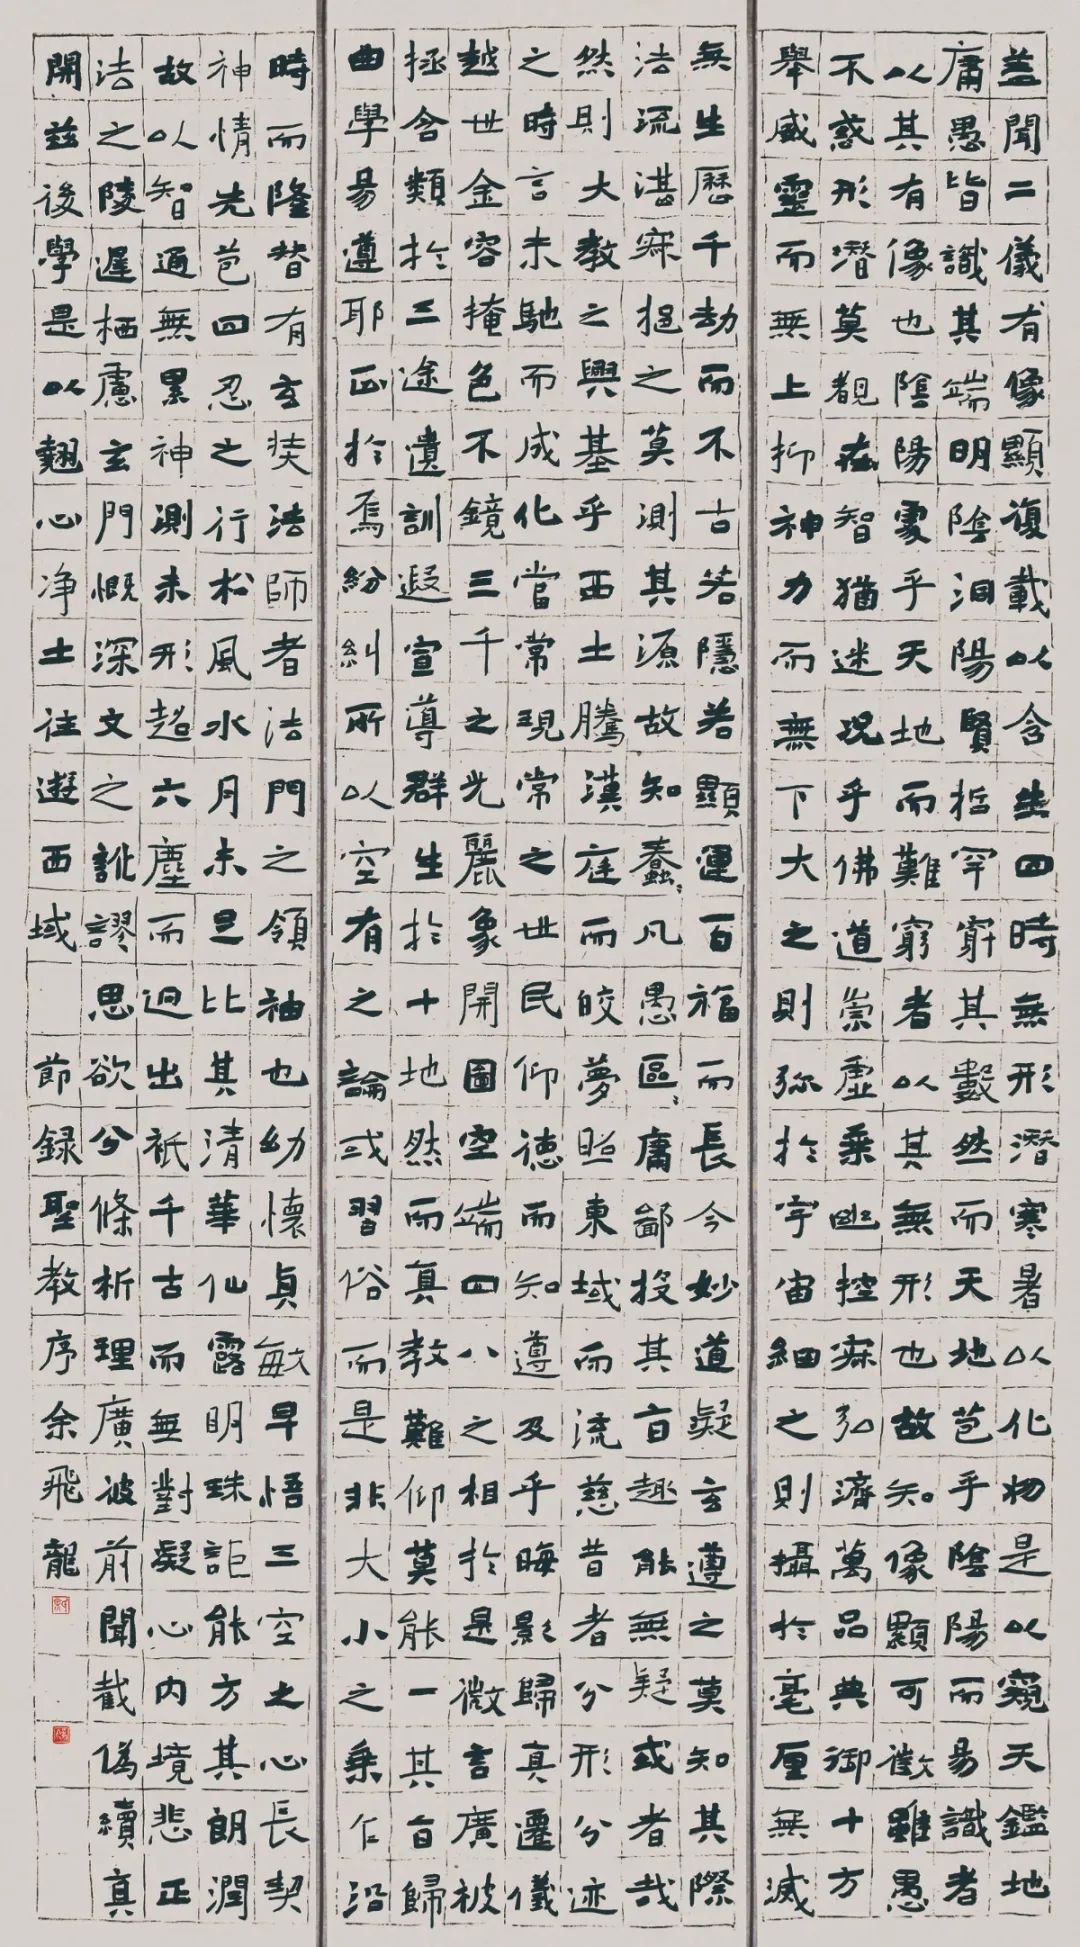 盖聞二儀有像顯復載以含生四時無形潛寒暑以化物是以窺天鑑地
庸愚皆識其端明陰洞陽賢哲罕窮其數然而天地苞乎陰陽而易識者
以其有像也陰陽處乎天地而難窮者以其無形也故知像顯可徵雖愚
不惑形潛莫覩在智猶迷况乎佛道崇虛乘幽控寂弘濟萬品典御十方
舉威靈而無上抑神力而無下大之則彌於宇宙細之則攝於毫厘無滅
無生歷千劫而不古若隱若顯運百福而長今妙道凝玄遵之莫知其際
法流湛寂挹之莫測其源故知蠢〻凡愚區〻庸鄙投其旨趣能無疑或者哉
然則大教之興基乎西土騰漢庭而皎夢照東域而流慈昔者分形分迹
之時言未馳而成化當常現常之世民仰德而知遵及乎晦影歸真遷儀
越世金容掩色不鏡三千之光麗象開圖空端四八之相於是微言廣被
拯含類於三途遺訓遐宣導群生於十地然而真教難仰莫能一其旨歸
曲學易遵耶正於焉紛糾所以空有之論或習俗而是非大小之乘乍沿
時而隆替有玄奘法師者法門之領袖也幼懷貞敏早悟三空之心長契
神情先苞四忍之行松風水月未足比其清華仙露明珠詎能方其朗潤
故以智通無累神測未形超六塵而迥出祇千古而無對凝心内境悲正
法之陵遲栖慮玄門慨深文之訛謬思欲分條析理廣彼前聞截偽續真
開兹後學是以翹心净土往遊西域 節録聖教序余飛龍